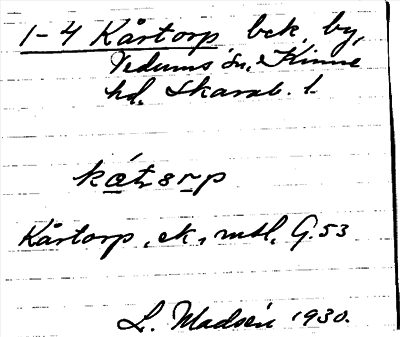 1-4 Kårtorp bck, by,
Vedums sn, Kinne
hd. Skarab. l.
Kårtorp, ek, mtl, G.53
L. Madsén 1930.